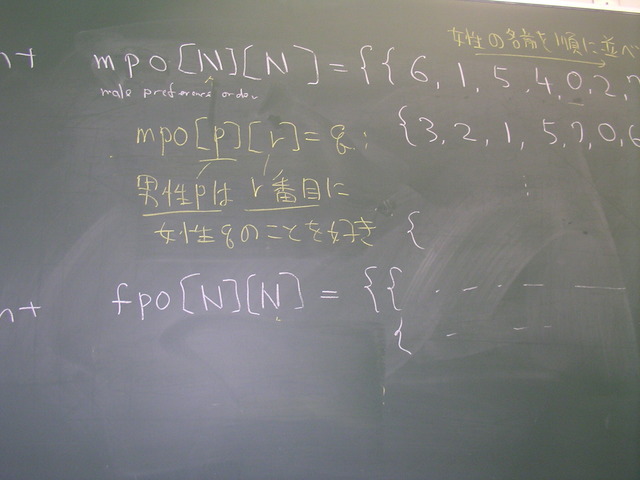 女性の名前を順に並べ
nt mpo[N][N] = {{6, 1, 5, 4, 0, 2, 7
male preference order
{3, 2, 1, 5, 7, 0, 6
mpo[p][r] = q;
男性pは r番目に
女性qのことを好き
{
nt fpo[N][N] = {{
{